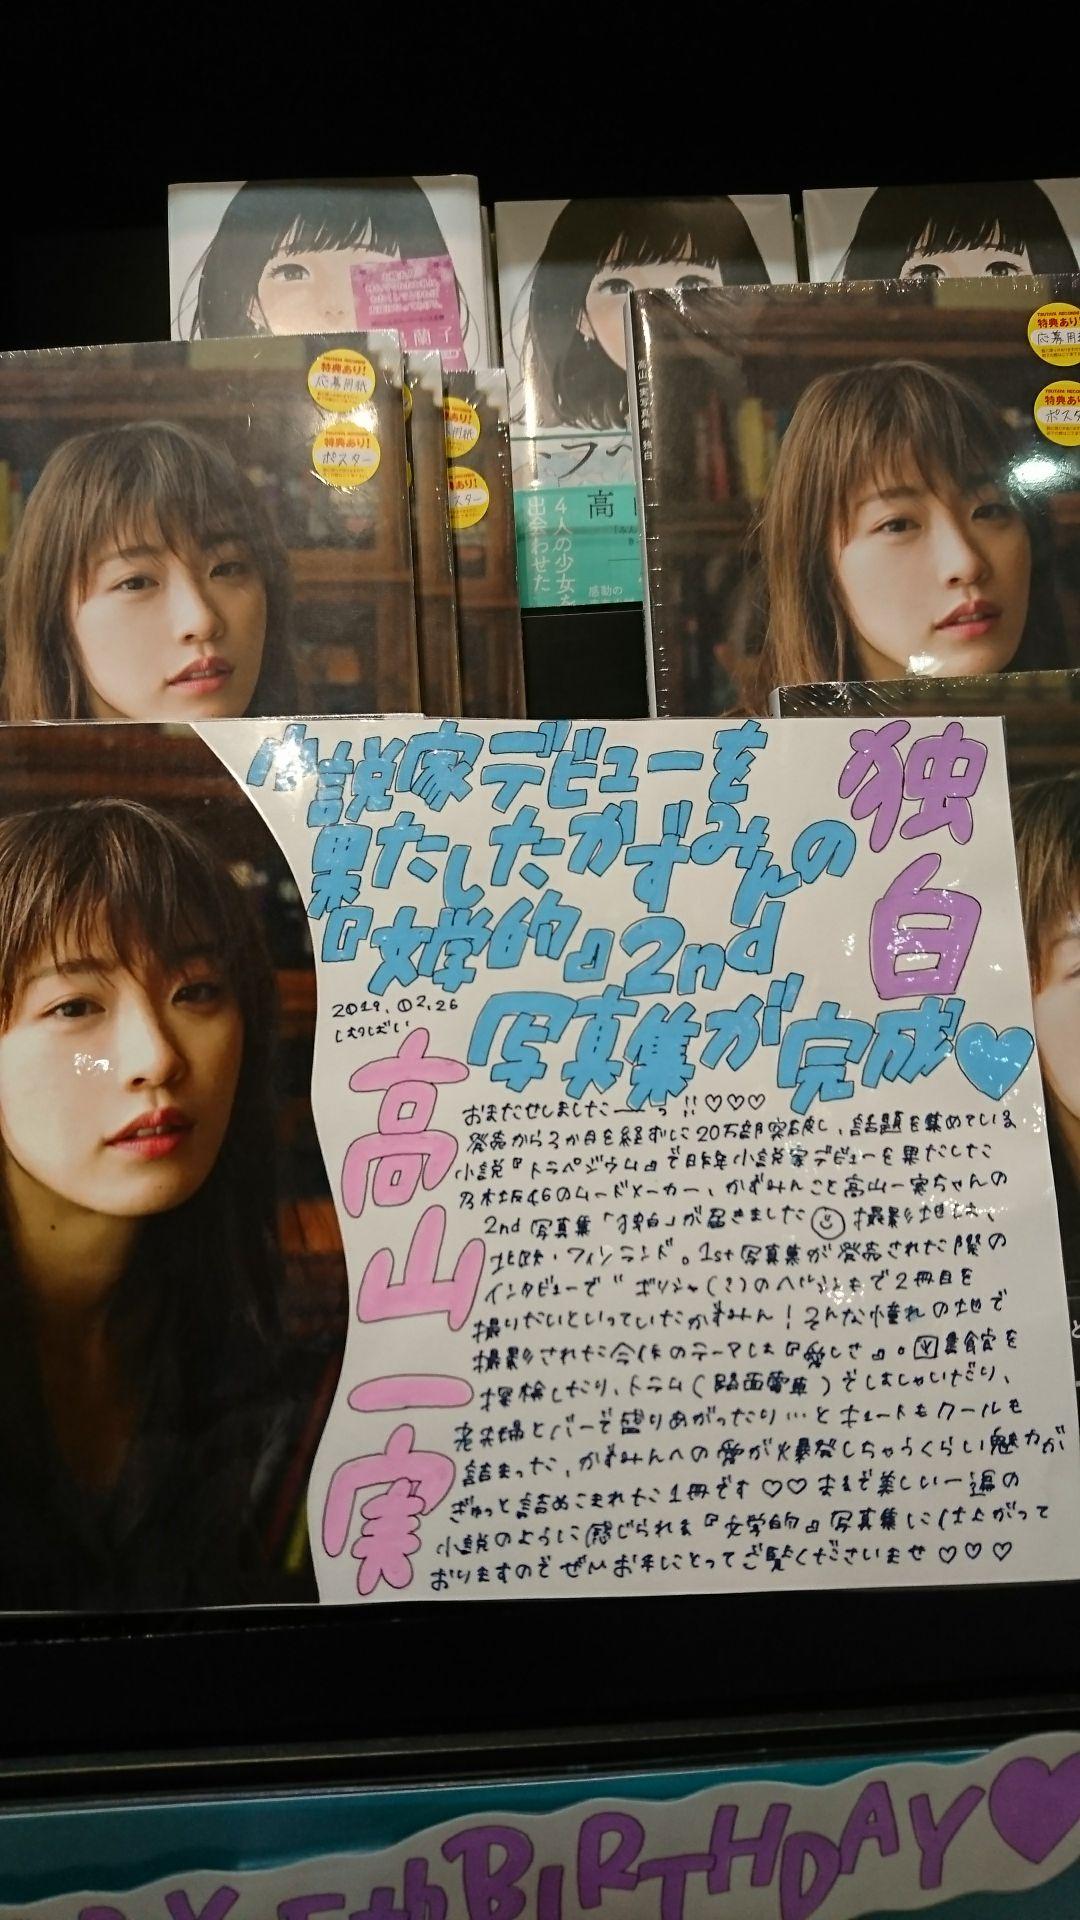 島蘭子
TSUTAYA RECORDS
特典あり!
応募用紙
特典あり!
ポスター
あり!
用紙
あり!
スター
4人の少女を
出会わせた
高
感動の
高山一実写真集 独白
TSUTAYA RECORDS
特典あり!
応募用
特典あり
ポスタ
独白
小説家デビューを
果たしたかずみんの
『文学的』2nd
写真集が完成♥
2019.02.26
はつばい
高山一実
おまたせしましたーっ!!♡♡♡
発売から3か月を経ずに20万部突破し、話題を集めている
小説『トラペジウム』で昨年小説家デビューを果たした
乃木坂46のムードメーカー、かずみんこと高山一実ちゃんの
2nd 写真集「独白」が届きました☺ 撮影地は、
北欧・フィンランド。1st写真集が発売された際の
インタビューで"ギリシャ(?)のヘルシンキで2冊目を
撮りたいといっていたかずみん!そんな憧れの地で
撮影された今作のテーマは『愛しさ』。図書館を
探検したり、トラム(路面電車)ではしゃいだり、
老夫婦とバーで盛りあがったり…とキュートもクールも
詰まった、かずみんへの愛が爆発しちゃうくらい魅力が
ぎゅっと詰めこまれた1冊です♡♡まるで美しい一遍の
小説のように感じられる『文学的』写真集に仕上がって
おりますのでぜひお手にとってご覧くださいませ♡♡♡
5th BIRTHDAY♥